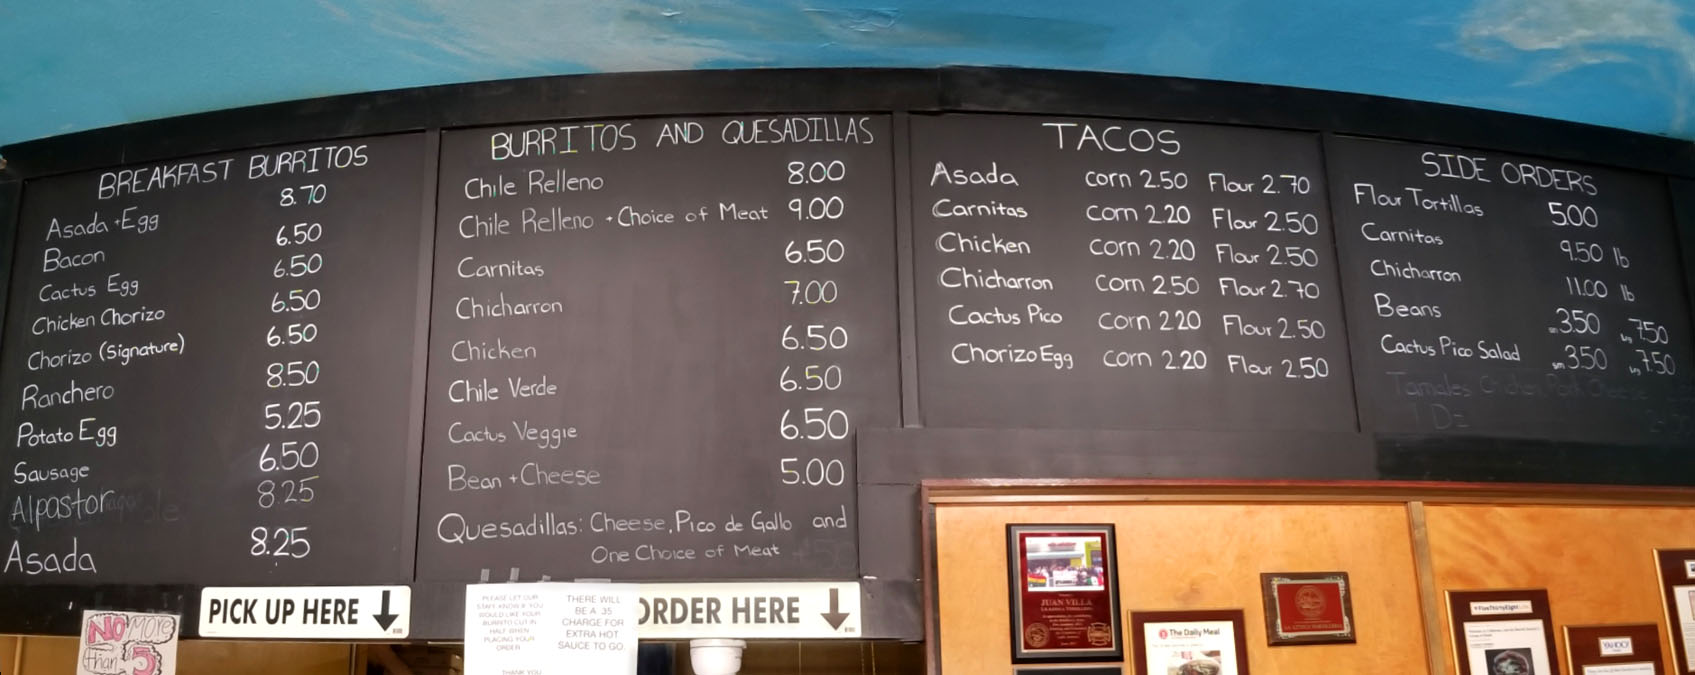 BREAKFAST BURRITOS
Asada + Egg 8.70
Bacon 6.50
Cactus Egg 6.50
Chicken Chorizo 6.50
Chorizo (Signature) 6.50
Ranchero 8.50
Potato Egg 5.25
Sausage 6.50
Alpastor 8.25
Asada 8.25
BURRITOS AND QUESADILLAS
Chile Relleno 8.00
Chile Relleno + Choice of Meat 9.00
Carnitas 6.50
Chicharron 7.00
Chicken 6.50
Chile Verde 6.50
Cactus Veggie 6.50
Bean + Cheese 5.00
Quesadillas: Cheese, Pico de Gallo and
One Choice of Meat
TACOS
Asada corn 2.50 Flour 2.70
Carnitas corn 2.20 Flour 2.50
Chicken corn 2.20 Flour 2.50
Chicharron corn 2.50 Flour 2.70
Cactus Pico corn 2.20 Flour 2.50
Chorizo Egg corn 2.20 Flour 2.50
SIDE ORDERS
Flour Tortillas 5.00
Carnitas 9.50 lb
Chicharron 11.00 lb
Beans sm 3.50 lrg 7.50
Cactus Pico Salad sm 3.50 lrg 7.50
PICK UP HERE
ORDER HERE
NO More
than $5
PLEASE LET OUR
STAFF KNOW IF YOU
WOULD LIKE YOUR
BURRITO CUT IN
HALF WHEN
PLACING YOUR
ORDER
THANK YOU
THERE WILL
BE A 35
CHARGE FOR
EXTRA HOT
SAUCE TO GO.
JUAN VILLA
The Daily Meal
FiveThirtyEight
YAHOO!